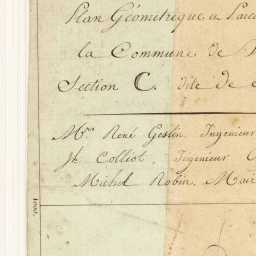 Plan Géometrique et Parc
la Commune de
Section C. dite de
Mrs. René Geslin Ingenieur
Jh. Colliot, Ingenieur
Michel Robin, Mair